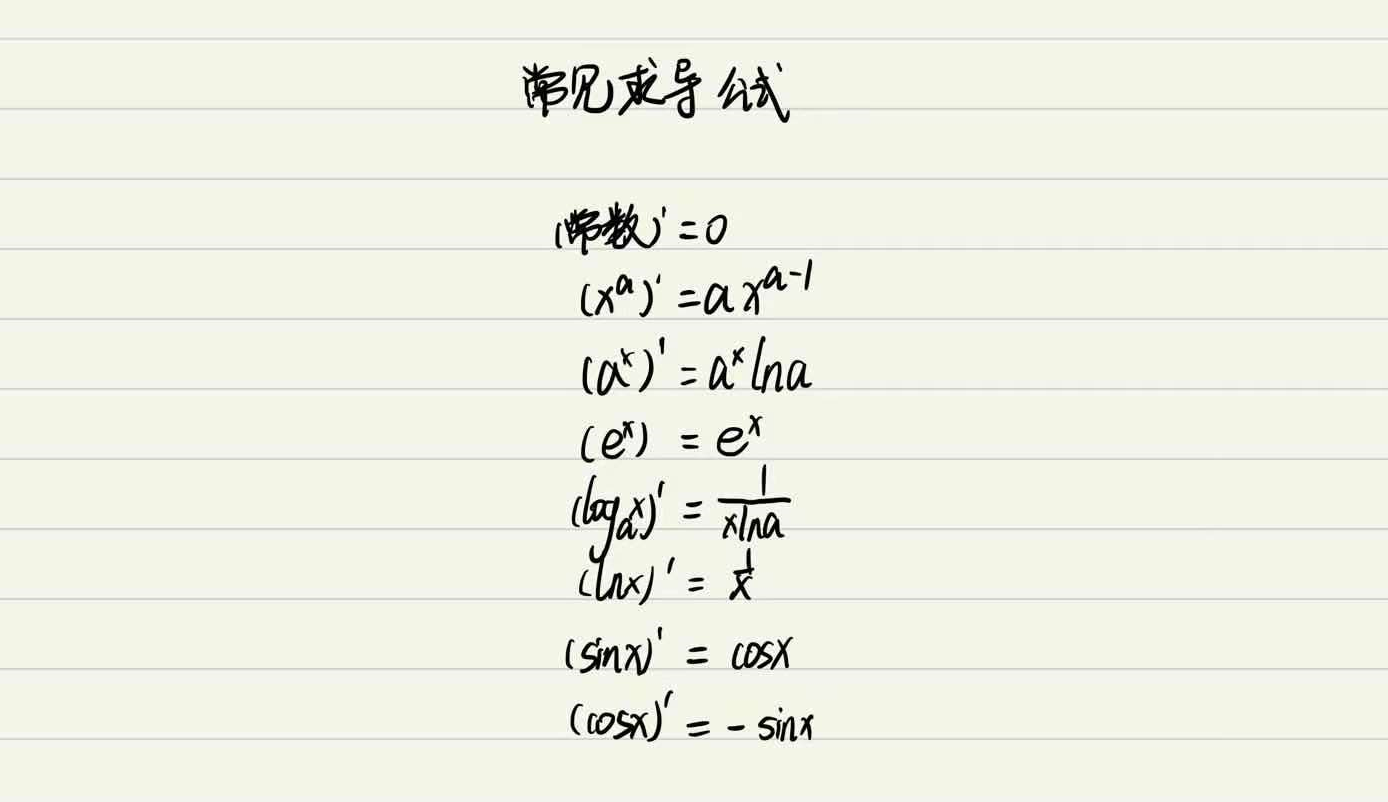 常见求导公式
(常数)'=0
(x^a)'=ax^{a-1}
(a^x)'=a^x lna
(e^x) = e^x
(log_a x)' = \frac{1}{xlna}
(lnx)' = \frac{1}{x}
(sinx)' = cosx
(cosx)' = - sinx